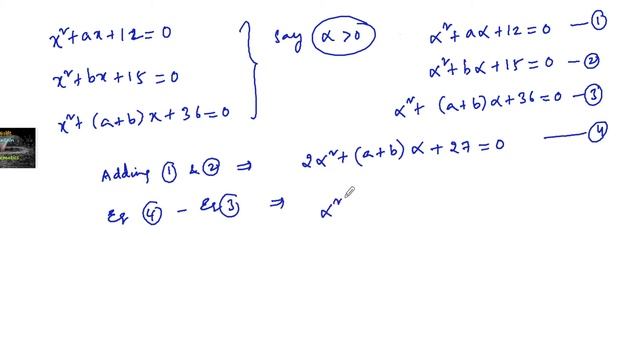 x²+ax+12=0
x²+bx+15=0
x²+(a+b)x+36=0
say α>0
α²+aα+12=0 —①
α²+bα+15=0 —②
α²+(a+b)α+36=0 —③
Adding ① & ② ⇒ 2α²+(a+b)α+27=0 —④
Eq ④ – Eq ③ ⇒ α²